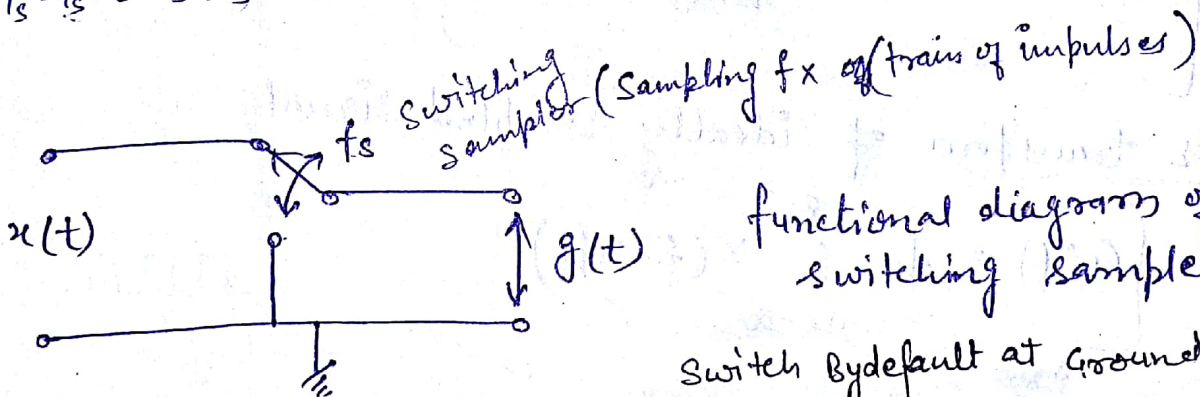 switching
sampler (Sampling fx of (train of impulses)
fs
x(t)
g(t)
functional diagram
switching sample
Switch Bydefault at Ground